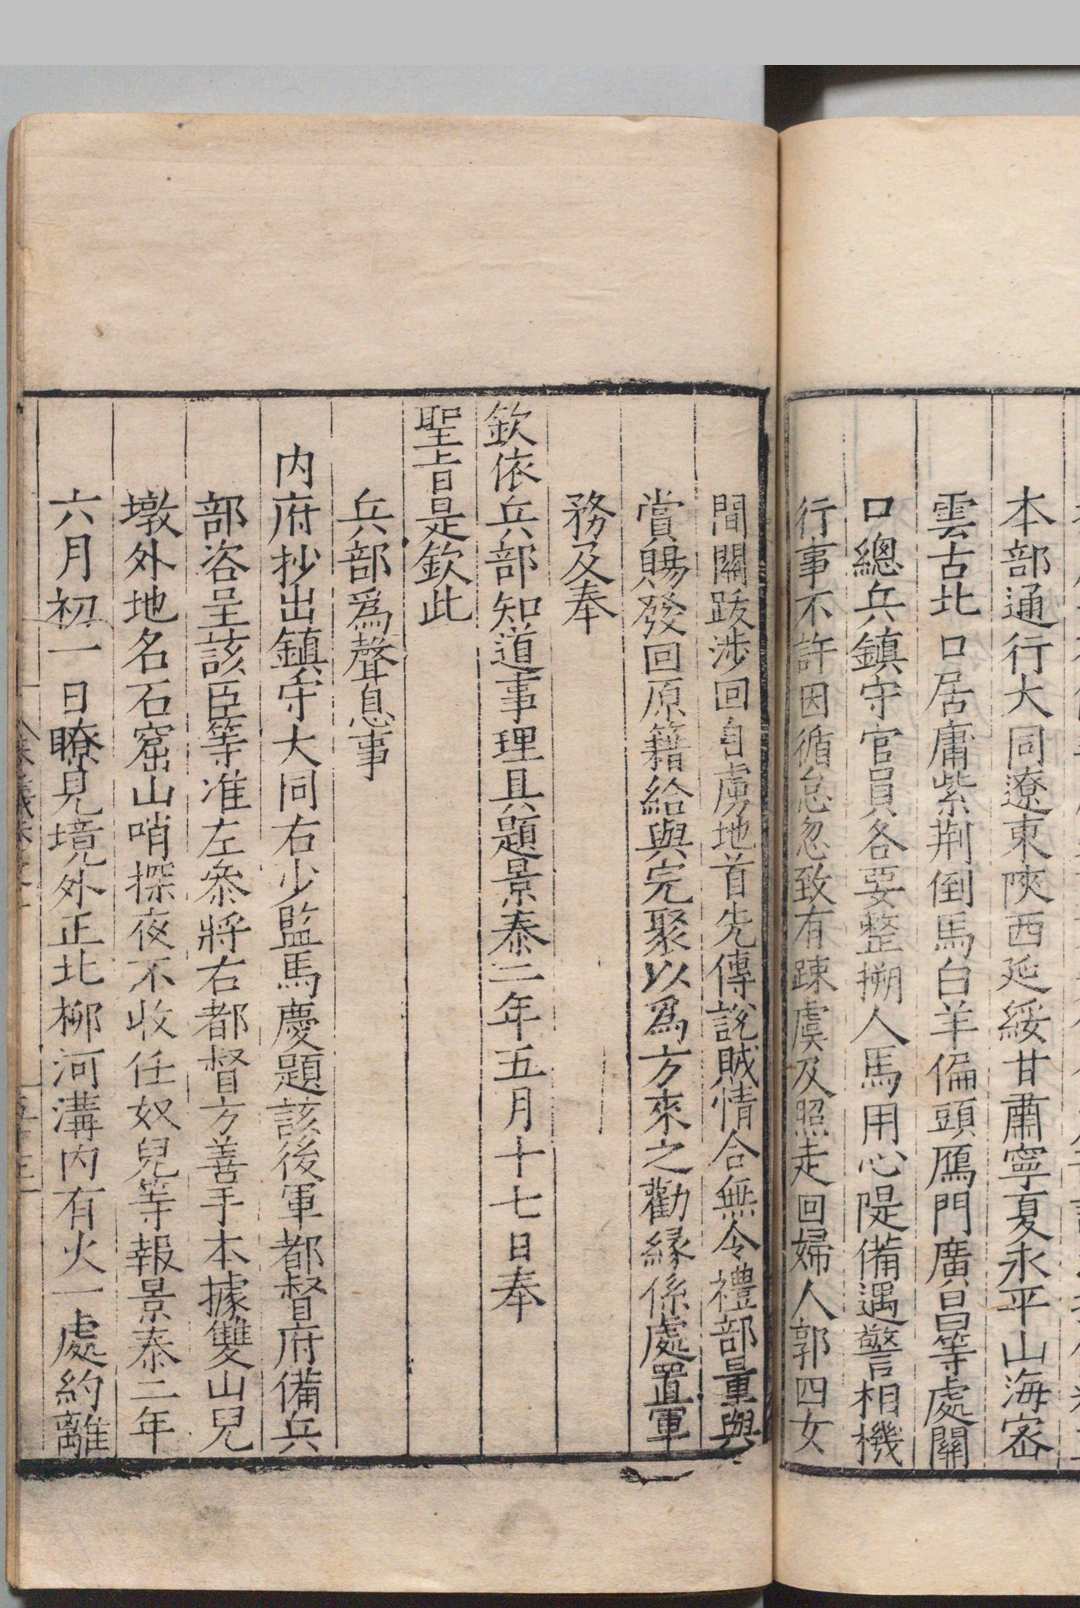 本部通行大同遼東陝西延綏甘肅寧夏永平山海密
雲古北口居庸紫荆倒馬白羊偏頭鴈門廣昌等處關
口總兵鎮守官員各要整搠人馬用心隄備遇警相機
行事不許因循怠忽致有踈虞及照走回婦人郭四女
間關跋涉回自虜地首先傳說賊情合無令禮部量與
賞賜發回原籍給與完聚以為方來之勸緣係處置軍
務及奉
欽依兵部知道事理具題景泰二年五月十七日奉
聖旨是欽此
兵部為聲息事
内府抄出鎮守大同右少監馬慶題該後軍都督府備兵
部咨呈該臣等准左叅將右都督方善手本據雙山兒
墩外地名石窰山哨探夜不收任奴兒等報景泰二年
六月初一日瞭見境外正北柳河溝内有火一處約離